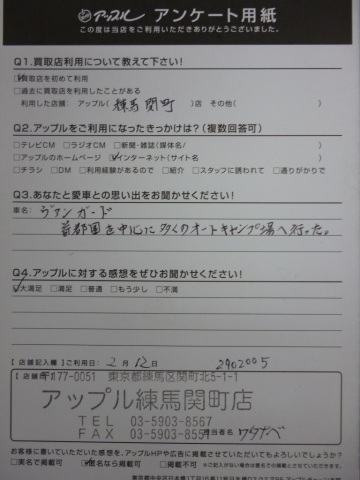 アップル アンケート用紙
この度は当店をご利用いただきありがとうございました。
Q1.買取店利用について教えて下さい!
☑買取店を初めて利用
□過去に買取店を利用したことがある
利用した店舗: アップル( 練馬関町 )店 その他( )
Q2.アップルをご利用になったきっかけは?(複数回答可)
□テレビCM □ラジオCM □新聞・雑誌(媒体名/ )
□アップルのホームページ ☑インターネット(サイト名 )
□チラシ □DM □利用経験があるので □紹介 □スタッフに誘われて □通りがかりで
Q3.あなたと愛車との思い出をお聞かせください!
車名: ヴァンガード
首都圏を中心に多くのオートキャンプ場へ行った。
Q4.アップルに対する感想をぜひお聞かせください!
☑大満足 □満足 □普通 □もう少し □不満
【店舗記入欄】ご利用日: 2月12日 2902005
【店舗 〒177-0051 東京都練馬区関町北5-1-1
アップル練馬関町店
TEL 03-5903-8567
FAX 03-5903-855 担当者名 ワタナベ
お客様に書いていただいた感想を、アップルHPや広告に掲載させていただいてもよろしいでしょうか?
□実名で掲載可 ☑匿名なら掲載可 □掲載不可 ※ご記入がない場合は匿名での掲載とさせていただきます。